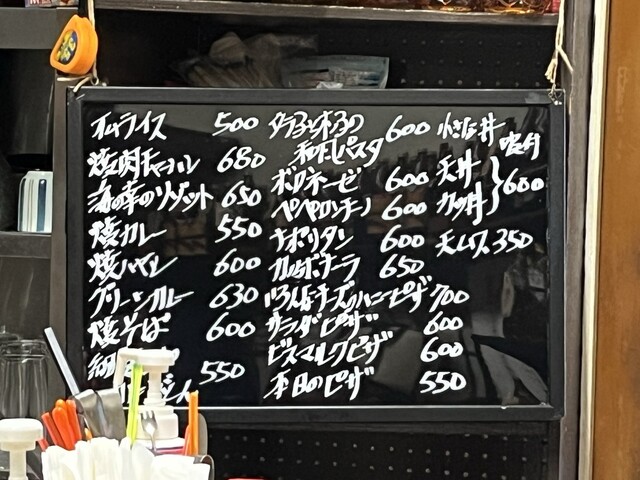 オムライス 500
焼肉チャーハン 680
海の幸のリゾット 650
焼カレー 550
焼ハヤシ 600
グリーンカレー 630
焼そば 600
550
タラコときのこの
和風パスタ 600
ボロネーゼ 600
ペペロンチーノ 600
ナポリタン 600
カルボナーラ 650
いろんなチーズのハニーピザ 700
サラダピザ 600
ビスマルクピザ 600
本日のピザ 550
天丼
カツ丼
600
天ムス 350